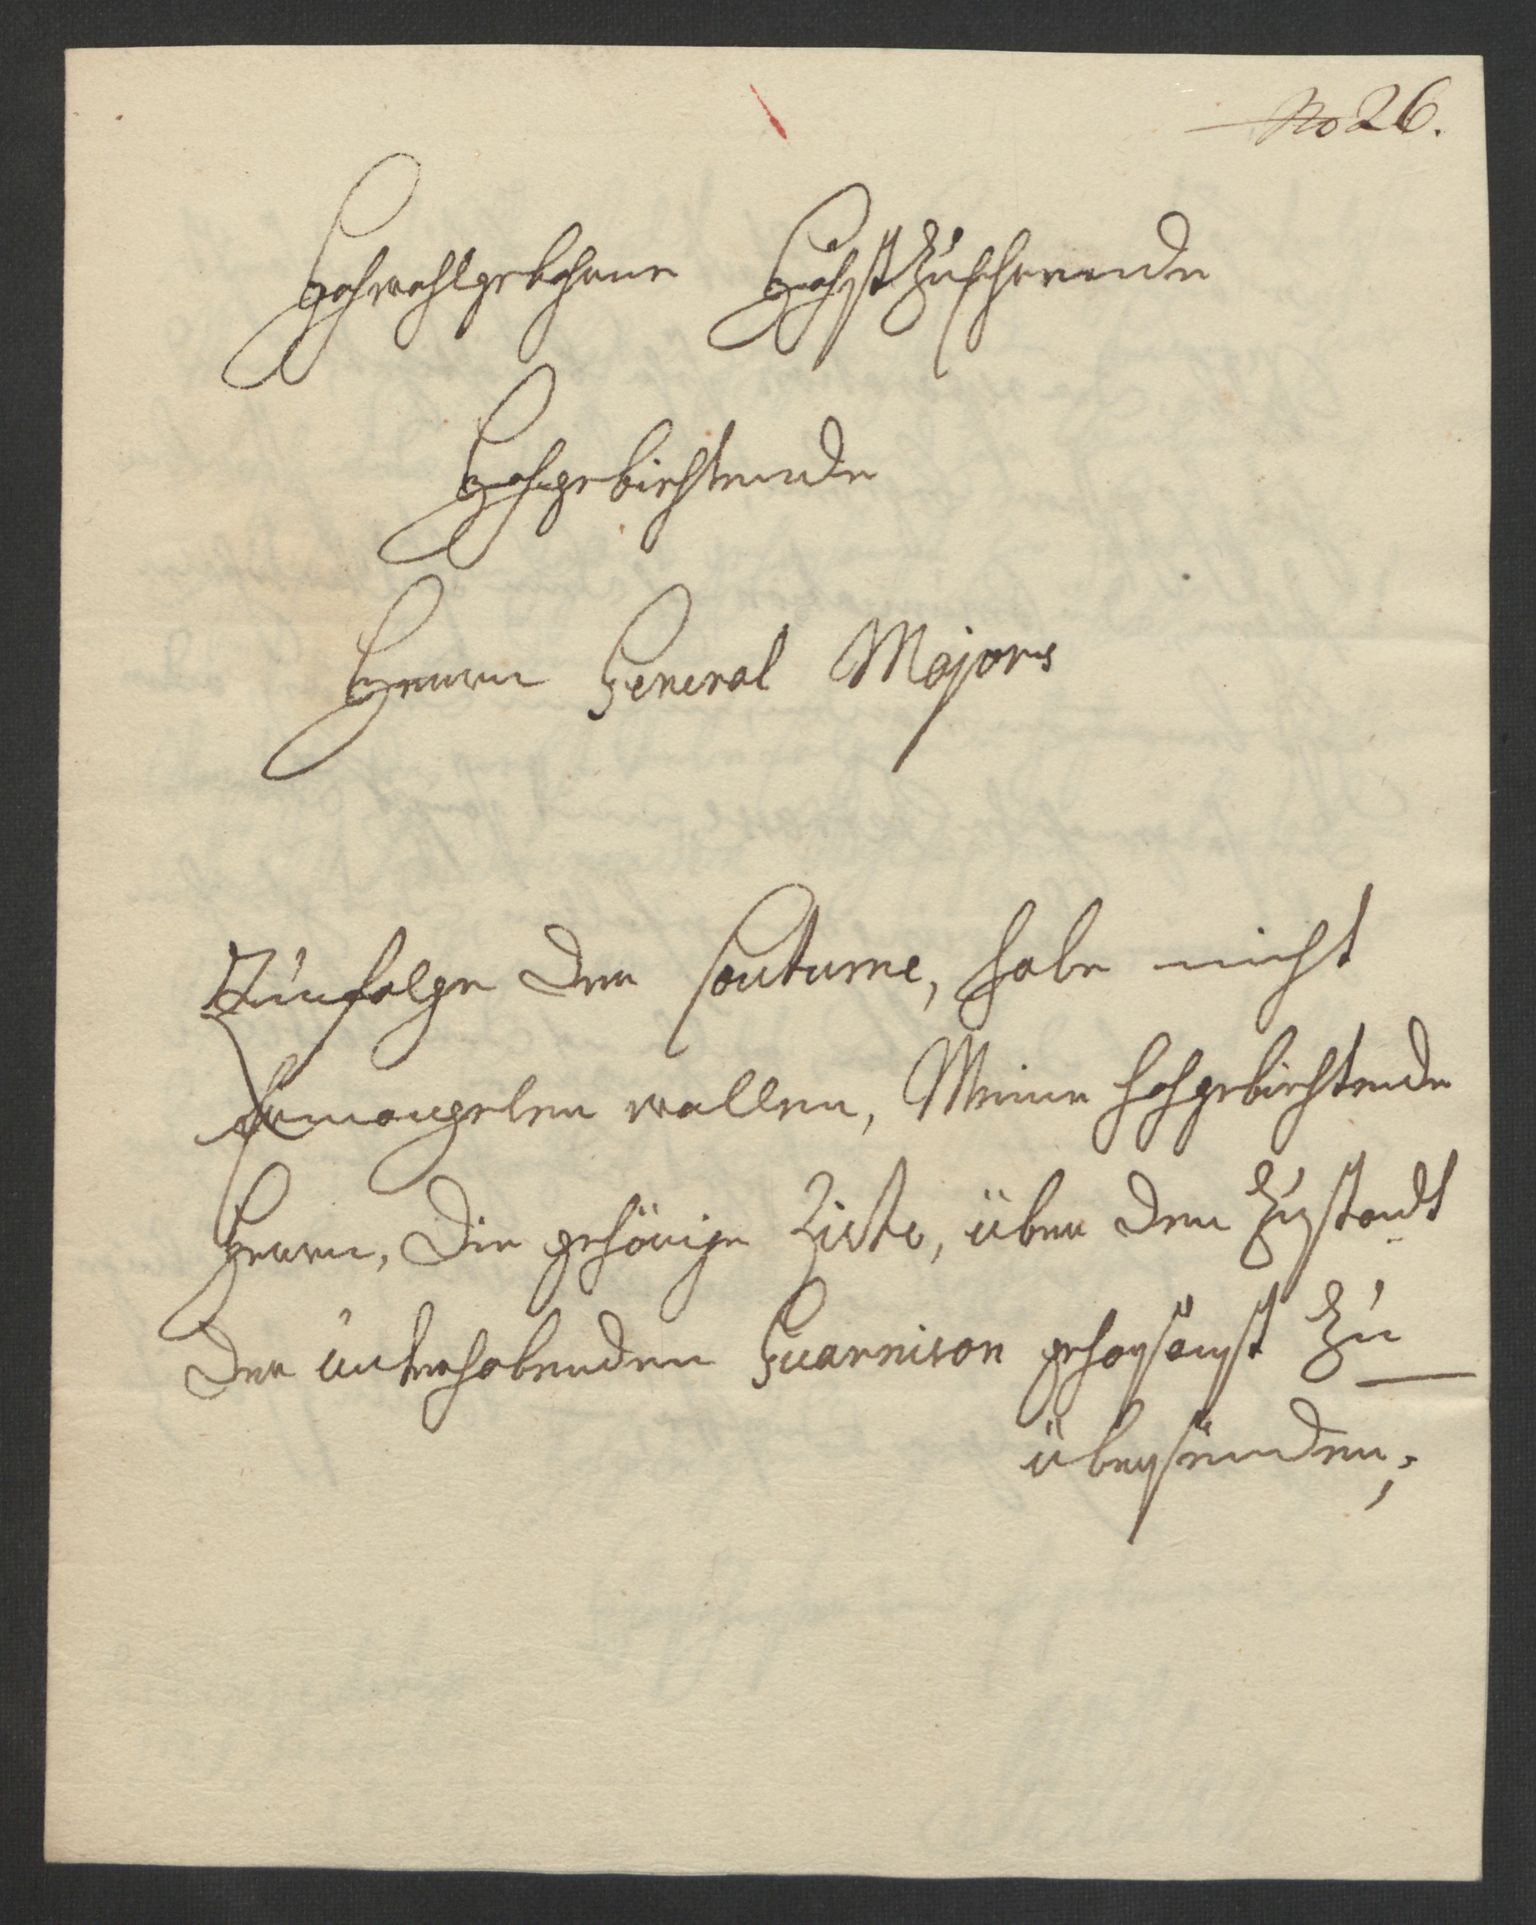 No 26.
Hochwohlgebohrne HöchstZuEhrende
Hochgebiehtende
Herrn General Majors
Zu folge der Coutume, habe nicht
Ermangelen wollen, Meine Hochgebiehtende
Herrn, die gehörige Liste, über den Zustandt
der unterhabenden Guarnison gehorsamst zu
übersenden;